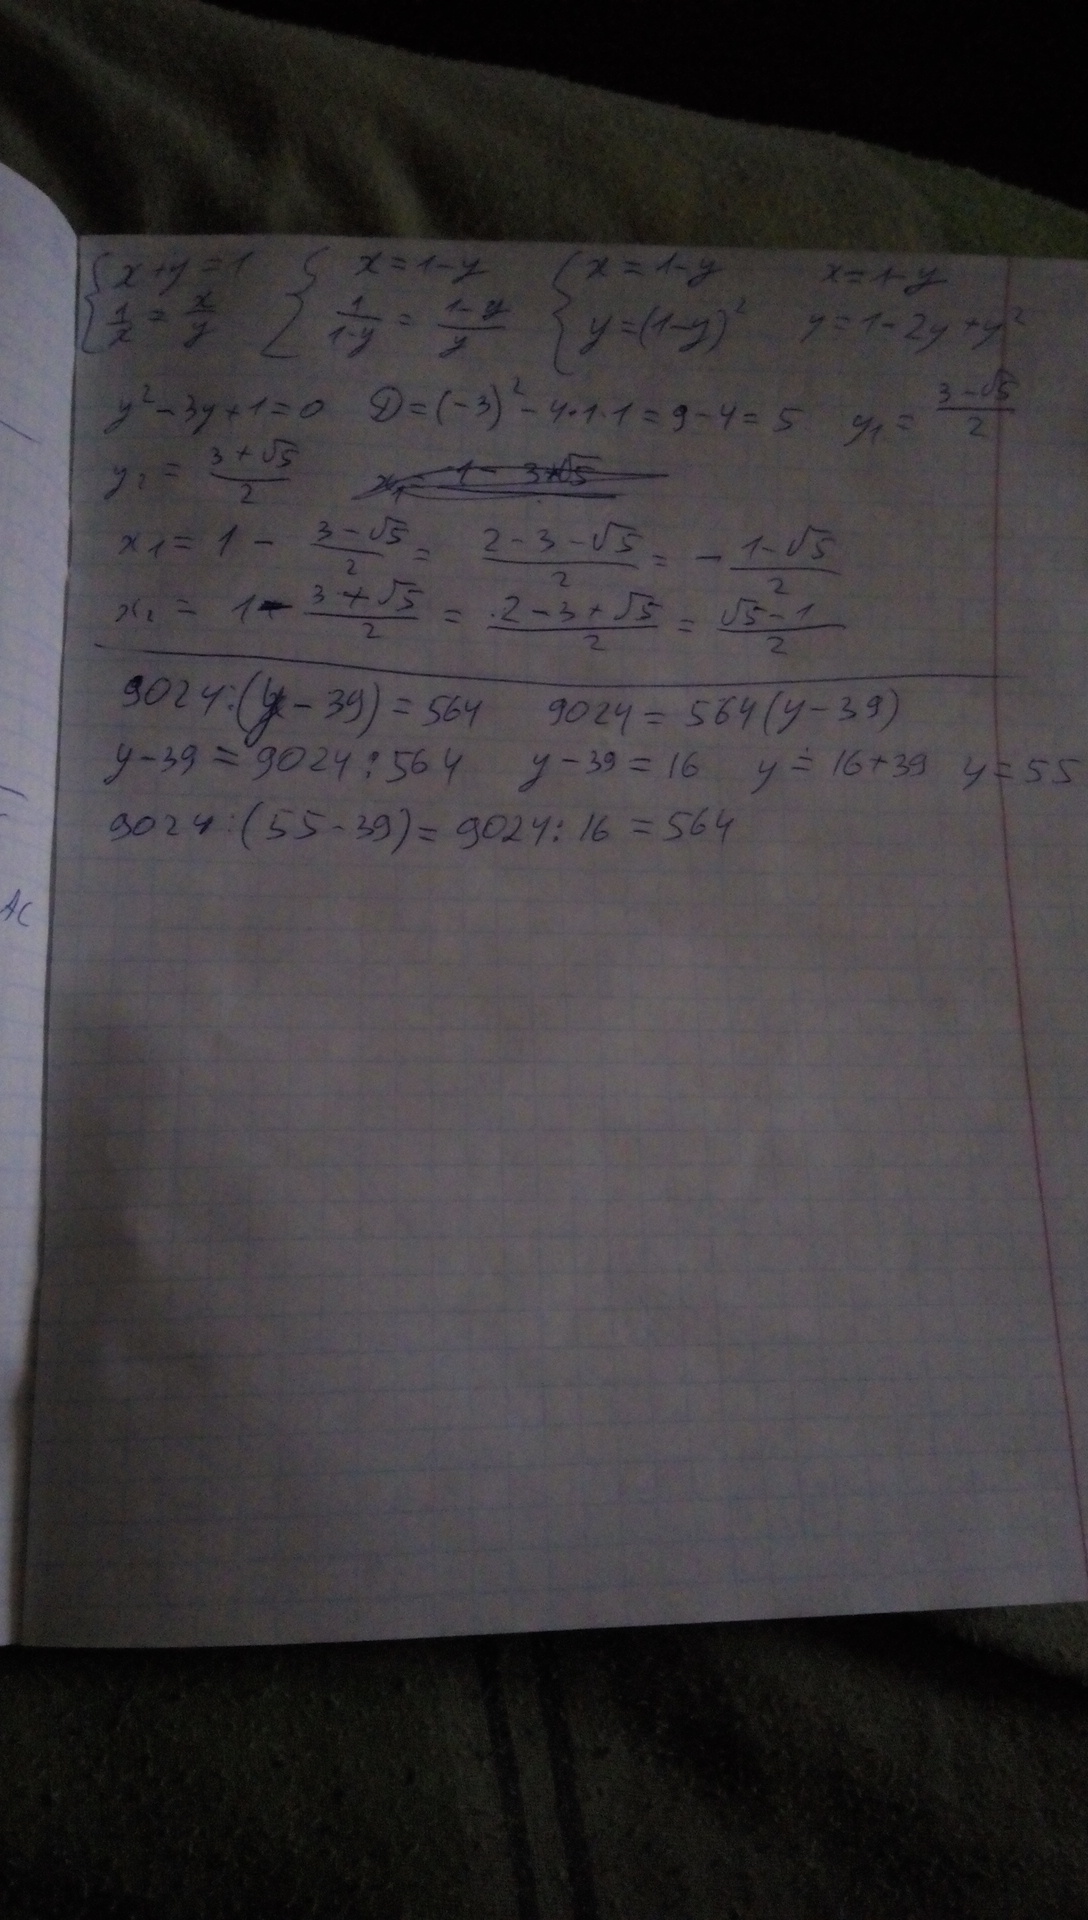 {x+y=1 {x=1-y {x=1-y x=1-y
{1/x = x/y {1/(1-y) = (1-y)/y {y=(1-y)² y=1-2y+y²
y²-3y+1=0 D=(-3)²-4·1·1=9-4=5 y₁= (3-√5)/2
y₂= (3+√5)/2
x₁=1- (3-√5)/2 = (2-3-√5)/2 = - (1-√5)/2
x₂= 1- (3+√5)/2 = (2-3+√5)/2 = (√5-1)/2
9024:(y-39)=564 9024=564(y-39)
y-39=9024:564 y-39=16 y=16+39 y=55
9024:(55-39)=9024:16=564
AC